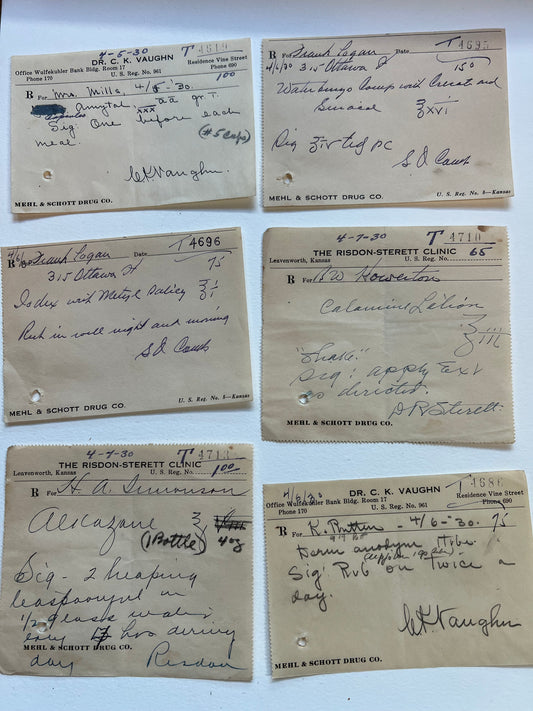 4-5-30 T 4619
DR. C. K. VAUGHN
Office Wulfekuhler Bank Bldg. Room 17 Residence Vine Street
Phone 170 U. S. Reg. No. 961 Phone 690
1.00
R For Mrs. Mills. 4/5-'30.
amytal. aa gr. T.
Sig. One before each
meal. (#5 caps)
C.K. Vaughn.
MEHL & SCHOTT DRUG CO.
T 4695
R For Frank Logan Date
4/6/30 315 Ottawa St 150
Comp with and
ʒXVI
Sig ʒIV tid PC
S D
MEHL & SCHOTT DRUG CO. U. S. Reg. No. 8—Kansas
T 4696
4/6/30
R For Frank Logan Date
315 Ottawa St 75
Iodex with Methyl Salicy ʒI
Rub in well night and morning
S D
U. S. Reg. No. 8—Kansas
MEHL & SCHOTT DRUG CO.
4-7-30 T 4710
THE RISDON-STERETT CLINIC 65
Leavenworth, Kansas U. S. Reg. No.
R For Howerton
Calamine Lotion
ʒiii
"Shake"
Sig: apply Ext
as directed.
D R Sterett.
MEHL & SCHOTT DRUG CO.
4-7-30 T 4713
THE RISDON-STERETT CLINIC
Leavenworth, Kansas U. S. Reg. No. 1.00
R For H. A. Simonson
Alocazone
(1 Bottle) 4 oz
Sig - 2 heaping
teaspoonful in
1/2 glass water
every hrs during
MEHL & SCHOTT DRUG CO.
day Risdon
4/6/30 T 4686
DR. C. K. VAUGHN
Office Wulfekuhler Bank Bldg. Room 17 Residence Vine Street
Phone 170 U. S. Reg. No. 961 Phone 690
R For K. - 4/6-'30. 75
anodyne
Sig: Rub on twice a
day.
C.K. Vaughn
MEHL & SCHOTT DRUG CO.